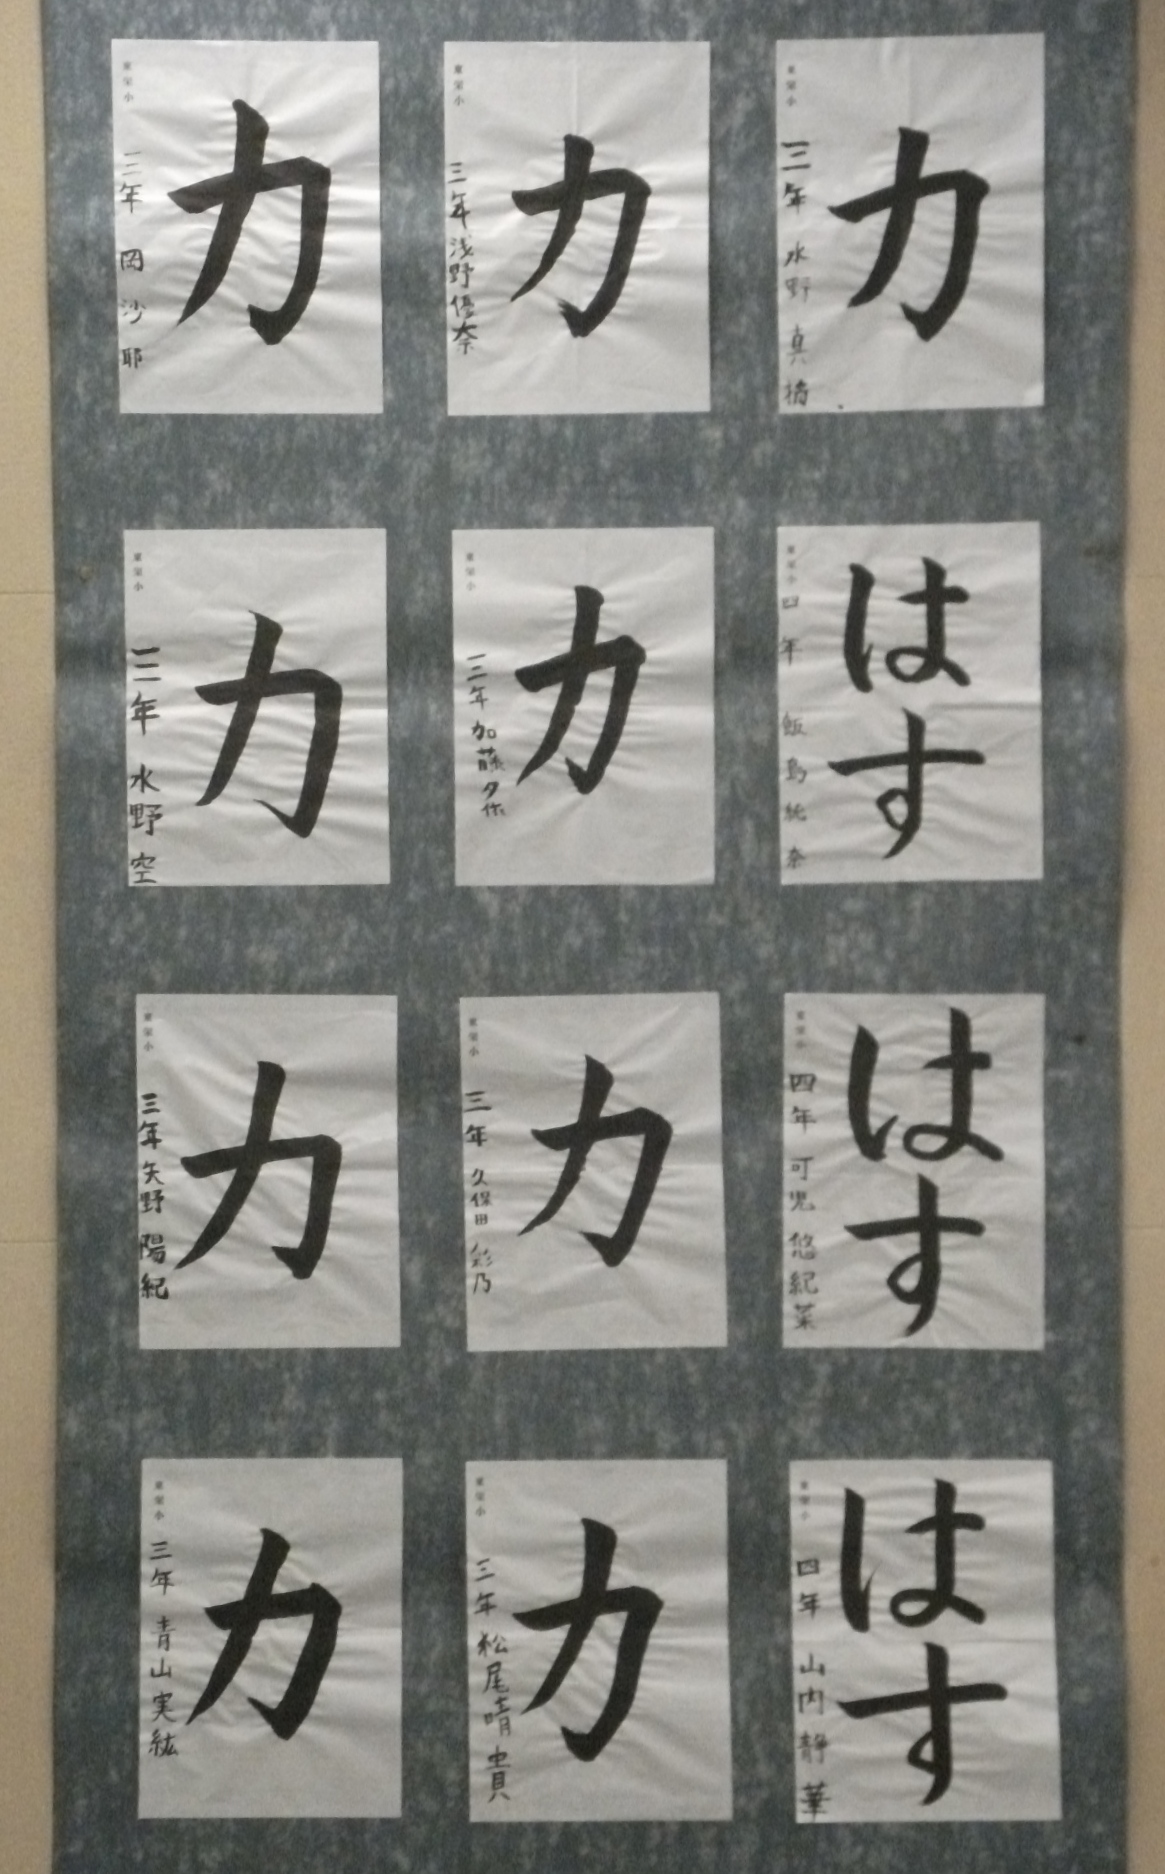 力
東栄小
三年 水野 真
力
東栄小
三年 浅野優奈
力
東栄小
三年 岡 沙耶
はす
東栄小
四年 飯島 奈
力
東栄小
三年 加藤夕
力
東栄小
三年 水野 空
はす
東栄小
四年 可児 悠紀菜
力
東栄小
三年 久保田 彩乃
力
東栄小
三年 矢野 陽紀
はす
東栄小
四年 山内 静華
力
東栄小
三年 松尾晴貴
力
東栄小
三年 青山実紘